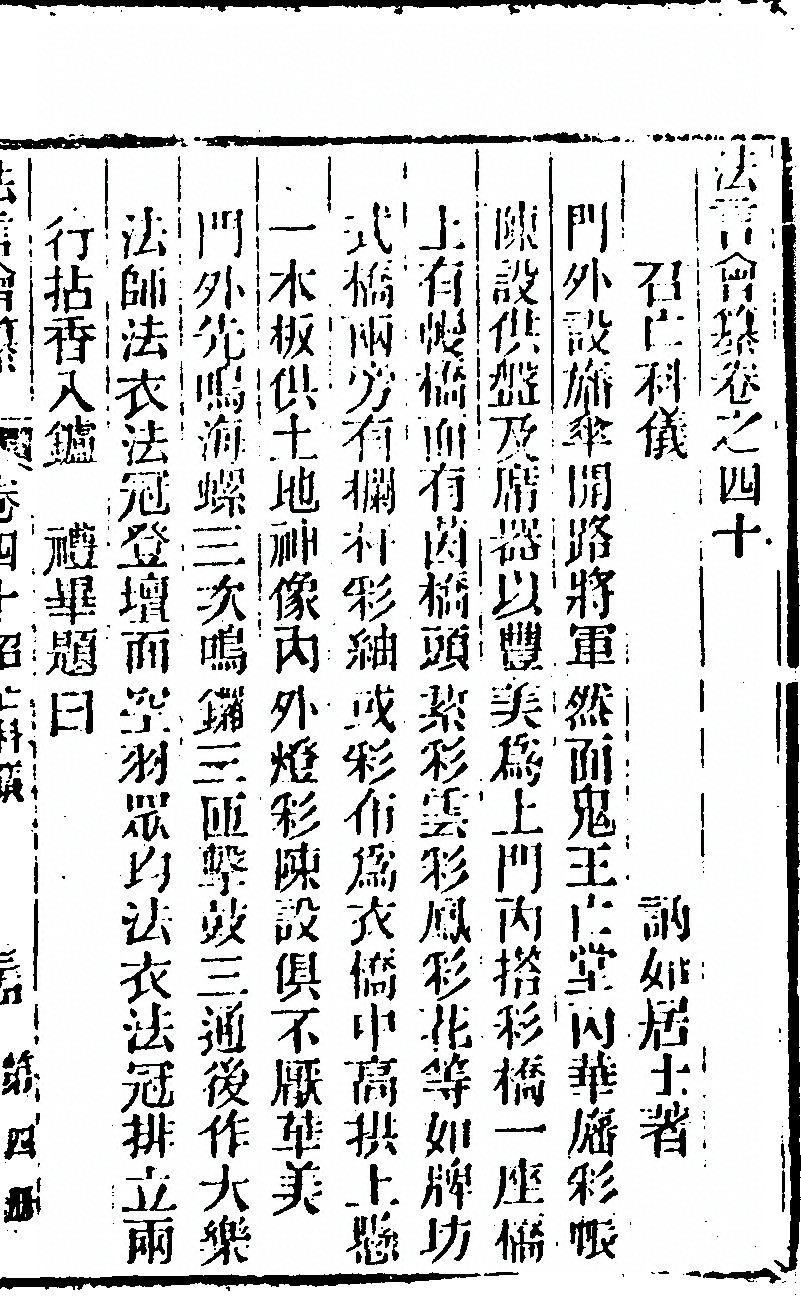 法言會纂卷之四十
召亡科儀
訥如居士著
門外設旛傘開路將軍然面鬼王亡堂內華旛彩帳
陳設供盤及席器以豐美為上門內搭彩橋一座橋
上有幔橋面有茵橋頭紥彩雲彩鳳彩花等如牌坊
式橋兩旁有欄杆彩紬或彩布為衣橋中高拱上懸
一木板供土地神像內外燈彩陳設俱不厭華美
門外先鳴海螺三次鳴鑼三匝擊鼓三通後作大樂
法師法衣法冠登壇面空羽眾均法衣法冠排立兩
行拈香入鑪　禮畢題曰
法言會纂　卷四十召亡科儀　第四册